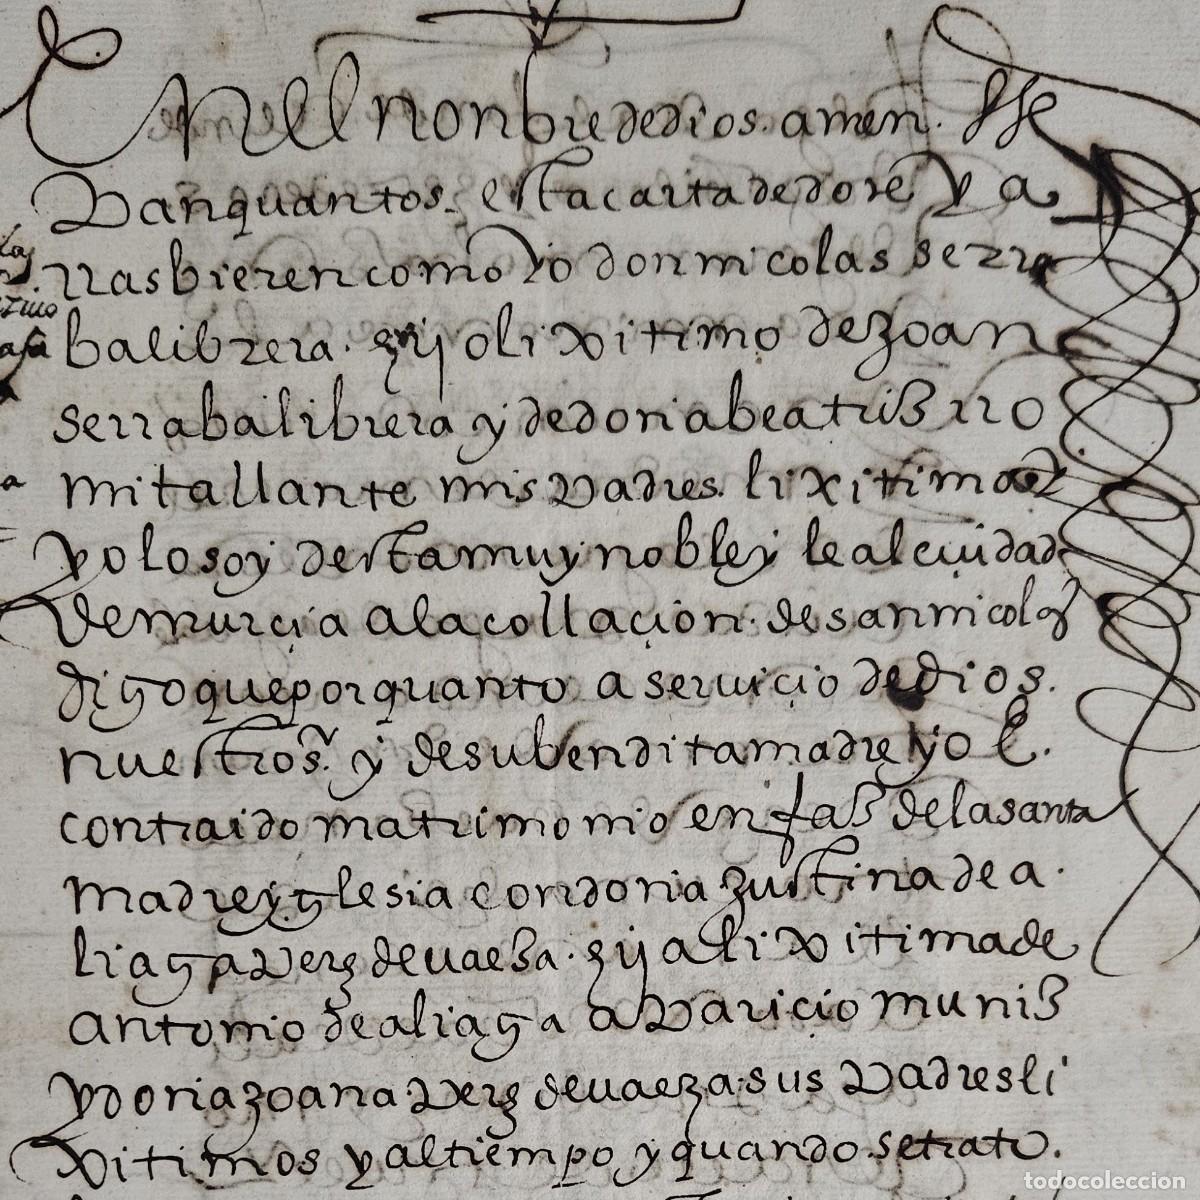 En el nonbre de dios. amen. sse
pan quantos. esta carta de dote y a
rras bieren como yo don nicolas serra
ba librera. hijo lixitimo de joan
serraba librera y de doña beatriz rro
mi tallante mis padres. lixitimos
y o lo soy desta muy noble y leal ciudad
de murcia a la collacion. de san nicolas
digo que por quanto a servicio de dios.
nuestro sr. y de su bendita madre yo e.
contraido matrimonio en faz de la santa
madre yglesia con doña justina de a.
liaga perez de vaeza. hija lixitima de
antonio de aliaga aparicio muniz
y doña joana. perez de vaeza. sus padres li
xitimos y al tiempo y quando. se trato.
todocoleccion